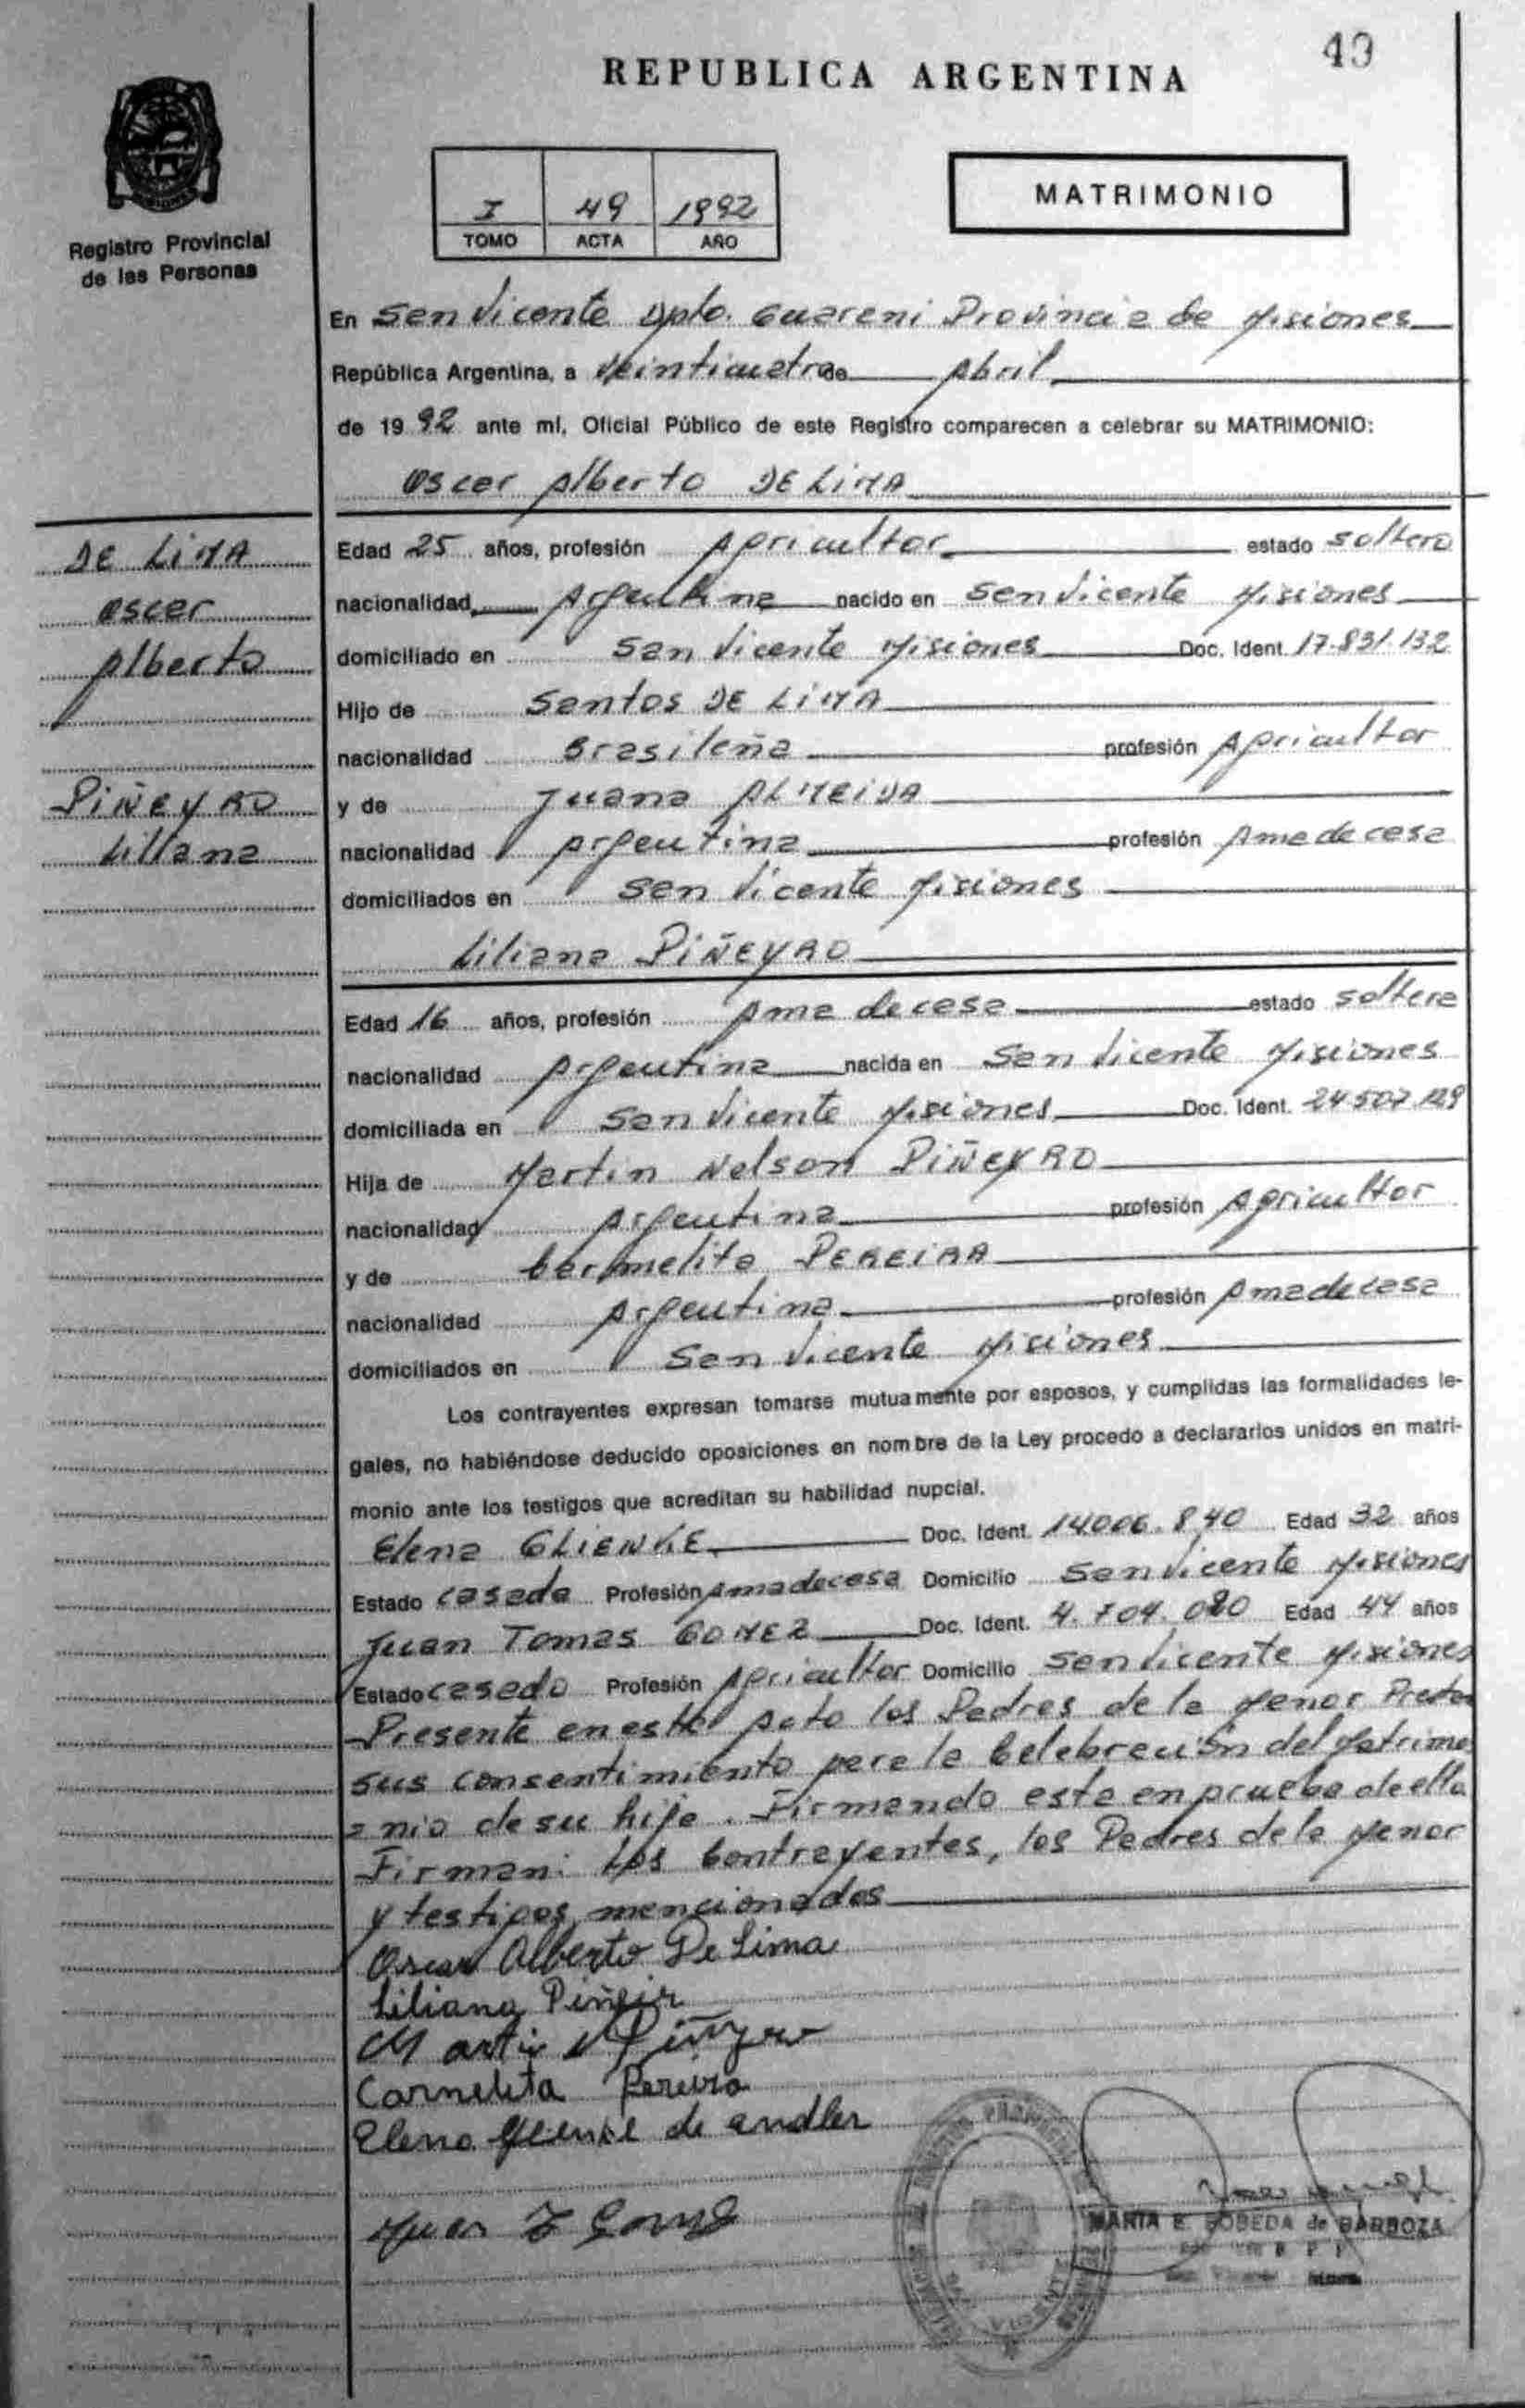 49
REPUBLICA ARGENTINA
Registro Provincial
de las Personas
I 49 1992
TOMO ACTA AÑO
MATRIMONIO
En San Vicente Dpto. Guarani Provincia de Misiones
República Argentina, a Veinticuatro de Abril
de 1992 ante mí, Oficial Público de este Registro comparecen a celebrar su MATRIMONIO:
Oscar Alberto DE LIMA
DE LIMA
Oscar
Alberto
PIÑEYRO
Liliana
Edad 25 años, profesión Agricultor estado soltero
nacionalidad Argentina nacido en San Vicente Misiones
domiciliado en San Vicente Misiones Doc. Ident. 17.831.132
Hijo de Santos DE LIMA
nacionalidad Brasileña profesión Agricultor
y de Juana ALMEIDA
nacionalidad Argentina profesión Ama de casa
domiciliados en San Vicente Misiones
Liliana PIÑEYRO
Edad 16 años, profesión Ama de casa estado soltera
nacionalidad Argentina nacida en San Vicente Misiones
domiciliada en San Vicente Misiones Doc. Ident. 24.507.129
Hija de Martin Nelson PIÑEYRO
nacionalidad Argentina profesión Agricultor
y de Carmelita PEREIRA
nacionalidad Argentina profesión Ama de casa
domiciliados en San Vicente Misiones
Los contrayentes expresan tomarse mutuamente por esposos, y cumplidas las formalidades le-
gales, no habiéndose deducido oposiciones en nombre de la Ley procedo a declararlos unidos en matri-
monio ante los testigos que acreditan su habilidad nupcial.
Elena GLIENKE Doc. Ident. 14006.840 Edad 32 años
Estado casada Profesión Ama de casa Domicilio San Vicente Misiones
Juan Tomas GOMEZ Doc. Ident. 4.704.020 Edad 44 años
Estado casado Profesión Agricultor Domicilio San Vicente Misiones
Presente en este Acto los Padres de la Menor Prestan
sus consentimiento para la Celebración del Matrimo
nio de su hija. Firmando esta en prueba de ello
Firman: Los Contrayentes, los Padres de la Menor
y testigos mencionados
Oscar Alberto De Lima
Liliana
Martin N Piñeyro
Carmelita Pereira
Elena Glienke de andler
Juan T Gomez
MARIA E. BOBEDA de BARBOZA